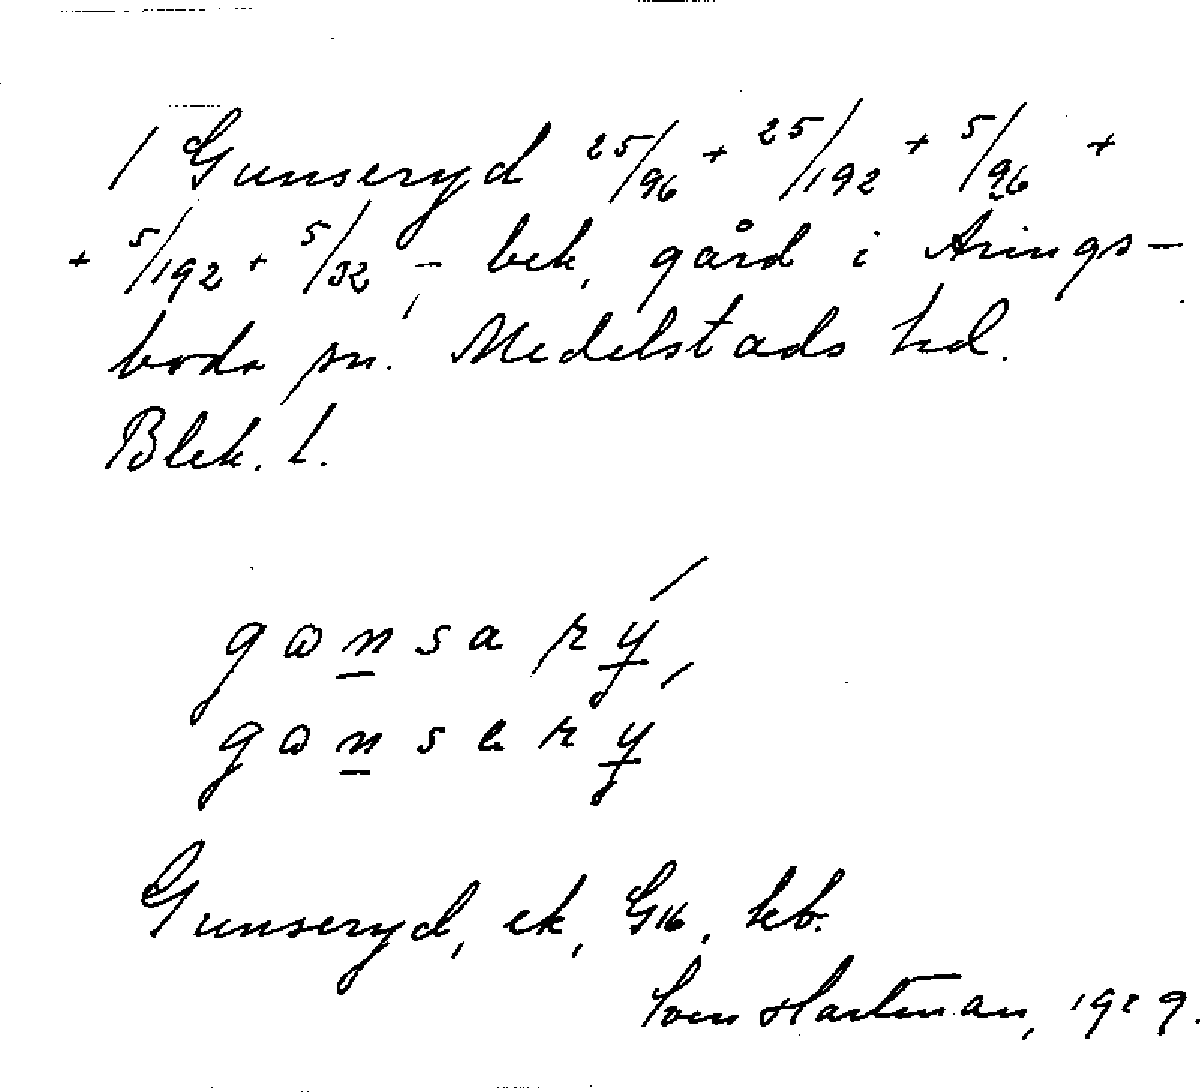 1 Gunseryd 25/96 + 25/192 + 5/96 +
+ 5/192 + 5/32 - bek, gård i Arings-
boda sn. Medelstads hd.
Blek. l.
gɷnsarý
gɷnserý
Gunseryd, ek, G16, kb.
Sven Hartman, 1929.